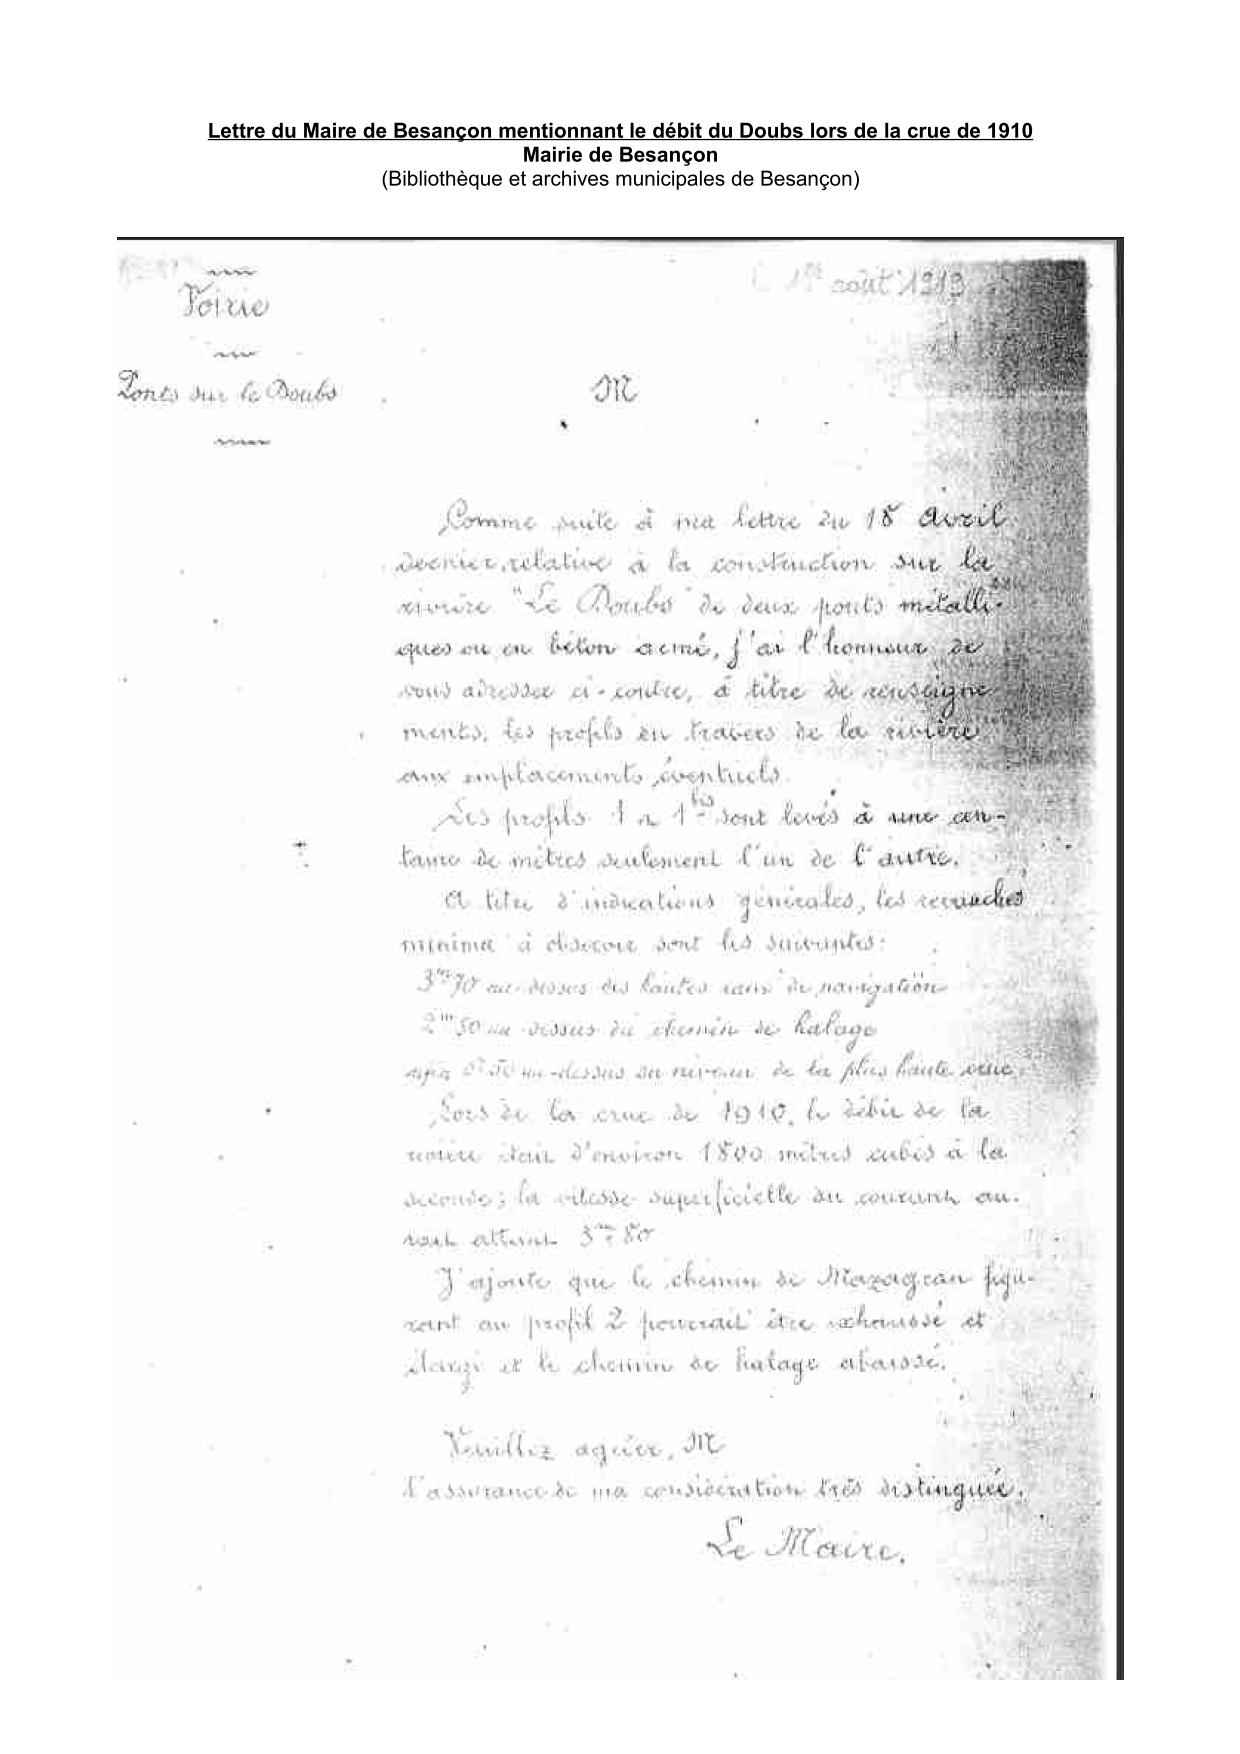 Lettre du Maire de Besançon mentionnant le débit du Doubs lors de la crue de 1910
Mairie de Besançon
(Bibliothèque et archives municipales de Besançon)
1er août 1913
Voirie
Ponts sur le Doubs
M
Comme suite à ma lettre du 18 avril
dernier, relative à la construction sur la
rivière "Le Doubs" de deux ponts métalli-
ques ou en béton armé, j'ai l'honneur de
vous adresser ci-contre, à titre de renseigne
ments, les profils en travers de la rivière
aux emplacements éventuels.
Les profils 1 et 1bis sont levés à une cen-
taine de mètres seulement l'un de l'autre.
A titre d'indications générales, les revanches
minima à observer sont les suivantes:
3m70 au-dessus des hautes eaux de navigation
2m50 au dessus du chemin de halage
0m50 au-dessus du niveau de la plus haute crue.
Lors de la crue de 1910, le débit de la
rivière était d'environ 1800 mètres cubes à la
seconde; la vitesse superficielle du courant au-
rait atteint 3m80
J'ajoute que le chemin de Mazagran figu-
rant au profil 2 pourrait être exhaussé et
élargi et le chemin de halage abaissé.
Veuillez agréer, M
l'assurance de ma considération très distinguée.
Le Maire.